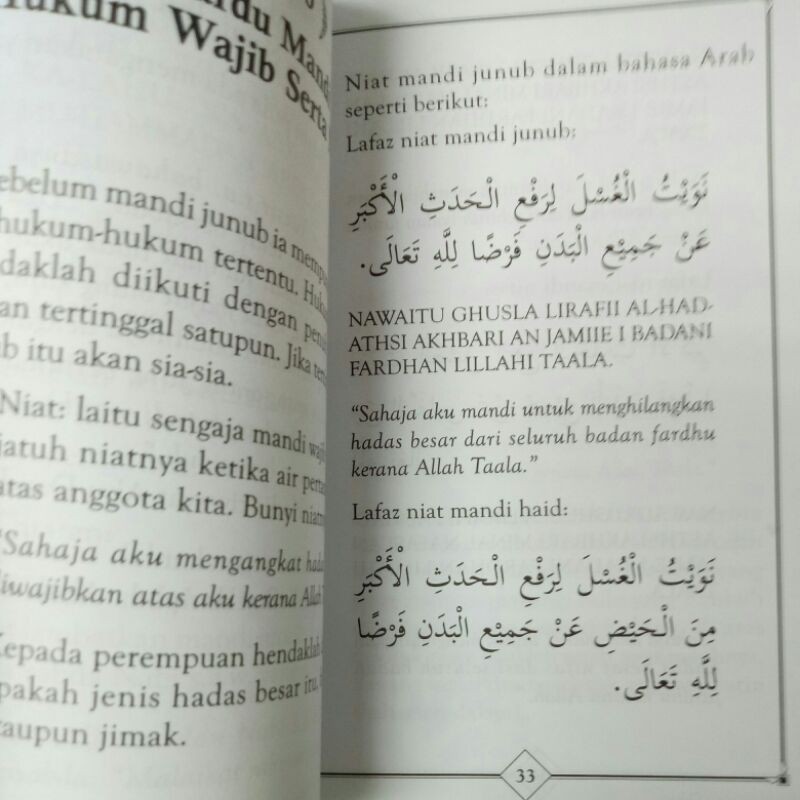 Mand
Hukum Wajib Serta
ebelum mandi junub ia
hukum-hukum tertentu.
daklah diikuti dengan
an tertinggal satupun. Jika
b itu akan sia-sia.
Niat: Iaitu sengaja mandi
jatuh niatnya ketika air
atas anggota kita. Bunyi
"Sahaja aku mengangkat
diwajibkan atas aku kerana Allah
Kepada perempuan hendaklah
apakah jenis hadas besar itu,
taupun jimak.
Niat mandi junub dalam bahasa Arab
seperti berikut:
Lafaz niat mandi junub:
نَوَيْتُ الْغُسْلَ لِرَفْعِ الْحَدَثِ الْأَكْبَرِ
عَنْ جَمِيْعِ الْبَدَنِ فَرْضًا لِلَّهِ تَعَالَى.
NAWAITU GHUSLA LIRAFII AL-HAD-
ATHSI AKHBARI AN JAMIIE I BADANI
FARDHAN LILLAHI TAALA.
"Sahaja aku mandi untuk menghilangkan
hadas besar dari seluruh badan fardhu
kerana Allah Taala."
Lafaz niat mandi haid:
نَوَيْتُ الْغُسْلَ لِرَفْعِ الْحَدَثِ الْأَكْبَرِ
مِنَ الْحَيْضِ عَنْ جَمِيْعِ الْبَدَنِ فَرْضًا
لِلَّهِ تَعَالَى.
33